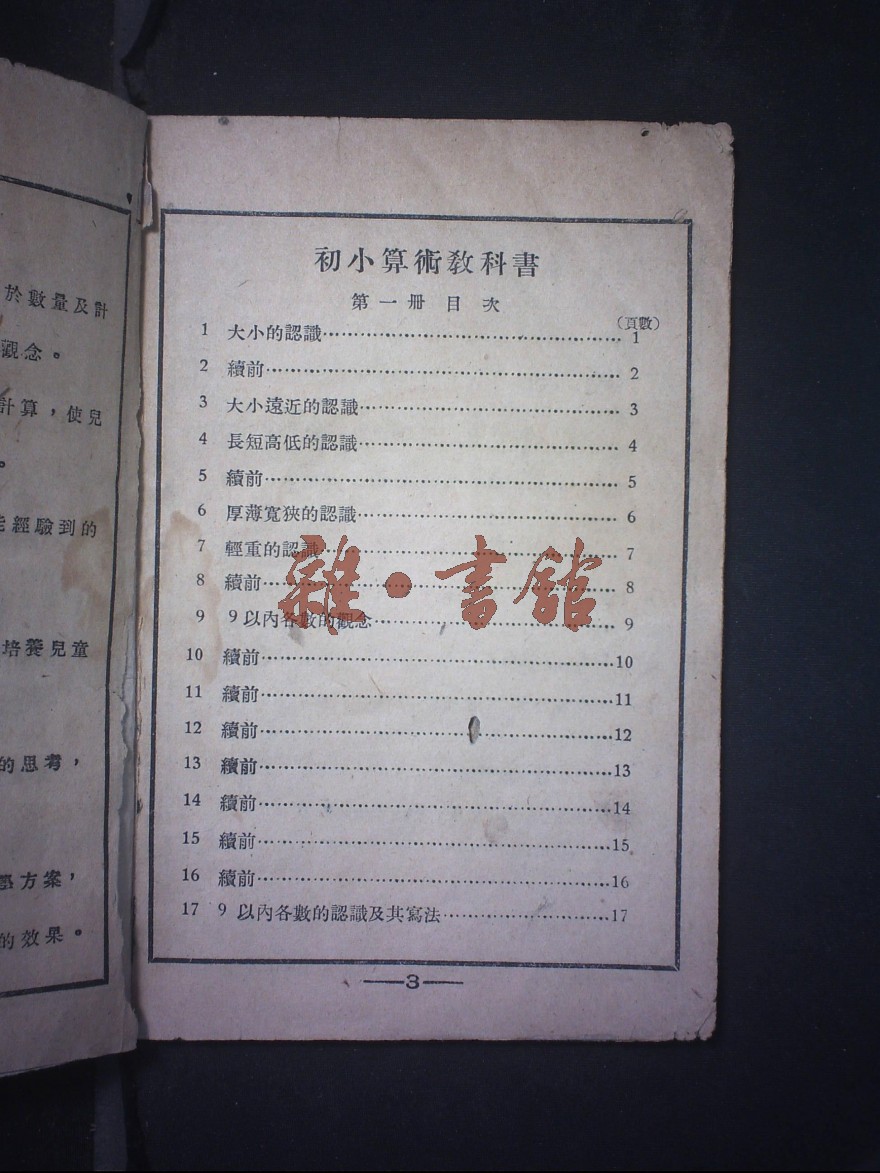 於數量及計
觀念。
計算，使兒
。
經驗到的
培養兒童
的思考，
方案，
的效果。
初小算術教科書
第一冊 目 次
(頁數)
1 大小的認識…………………………………………1
2 續前…………………………………………2
3 大小遠近的認識…………………………………………3
4 長短高低的認識…………………………………………4
5 續前…………………………………………5
6 厚薄寬狹的認識…………………………………………6
7 輕重的認識…………………………………………7
8 續前…………………………………………8
9 9以內各數的觀念…………………………………………9
10 續前…………………………………………10
11 續前…………………………………………11
12 續前…………………………………………12
13 續前…………………………………………13
14 續前…………………………………………14
15 續前…………………………………………15
16 續前…………………………………………16
17 9 以內各數的認識及其寫法………………………17
雜·書館
——3——